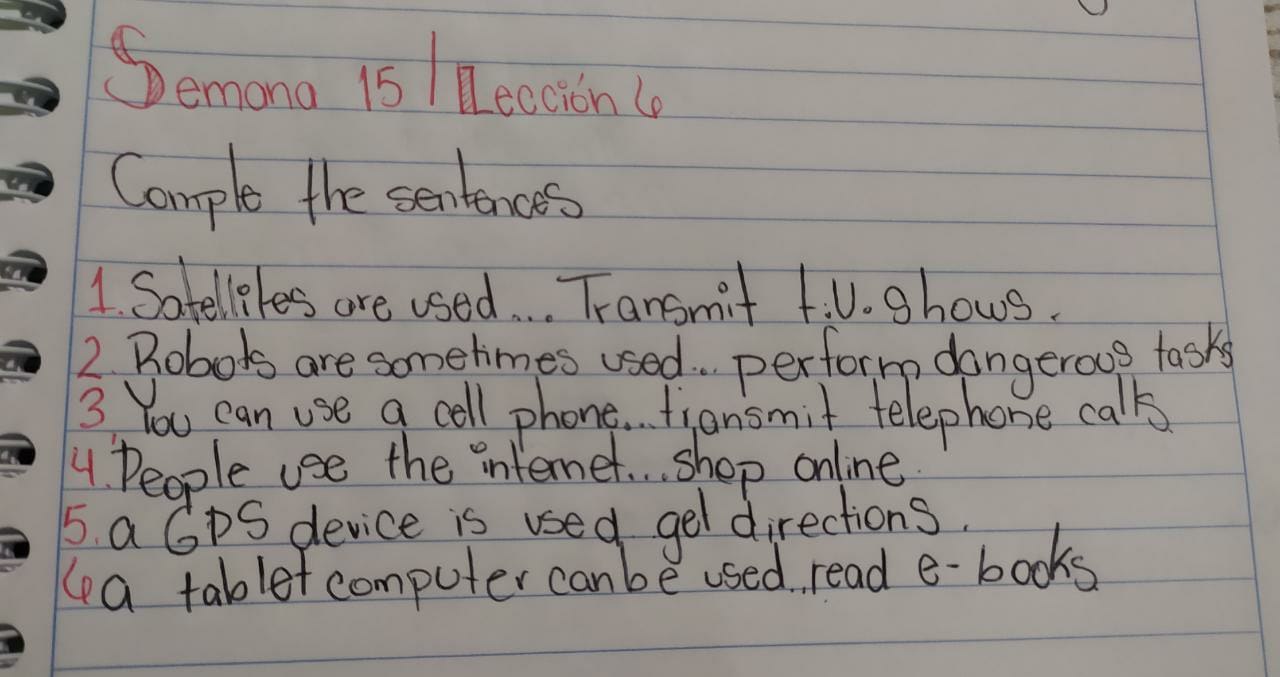 Semana 15 / Lección 6
Comple the sentences
1. Satellites are used... Transmit t.v. shows.
2. Robots are sometimes used... perform dangerous tasks
3. You can use a cell phone... transmit telephone calls
4. People use the internet... shop online.
5. a GPS device is used get directions.
6 a tablet computer can be used... read e-books